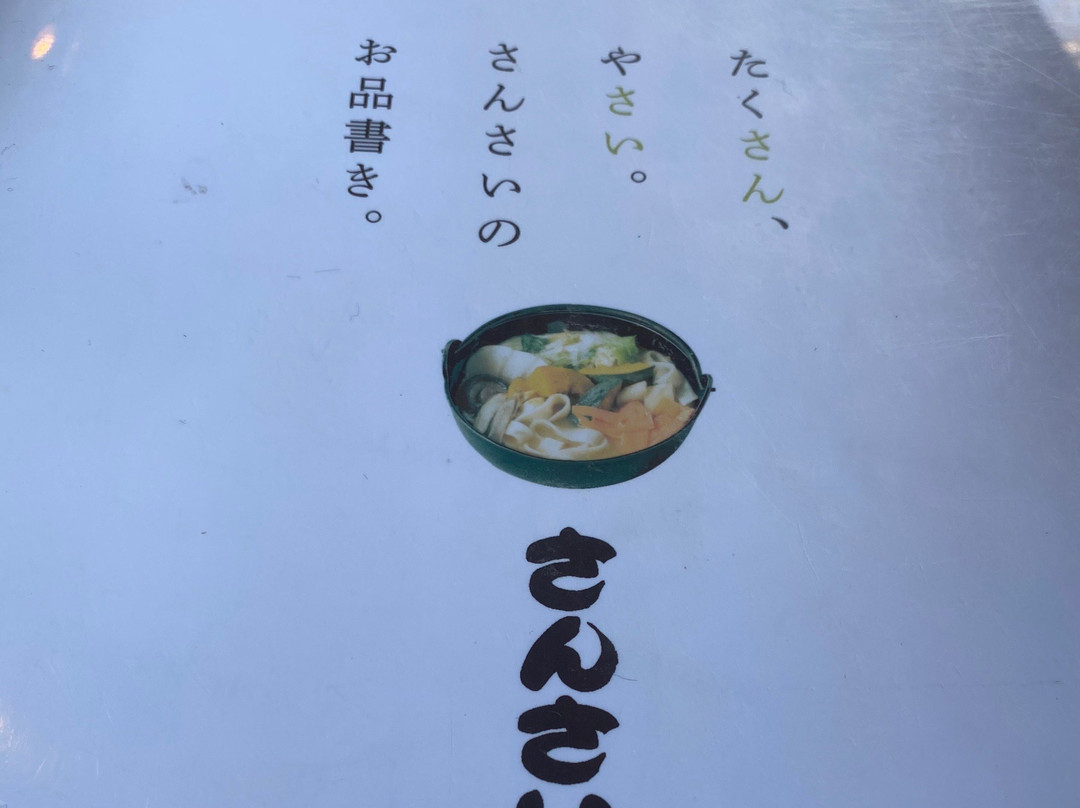 たくさん、
やさい。
さんさいの
お品書き。
さんさい